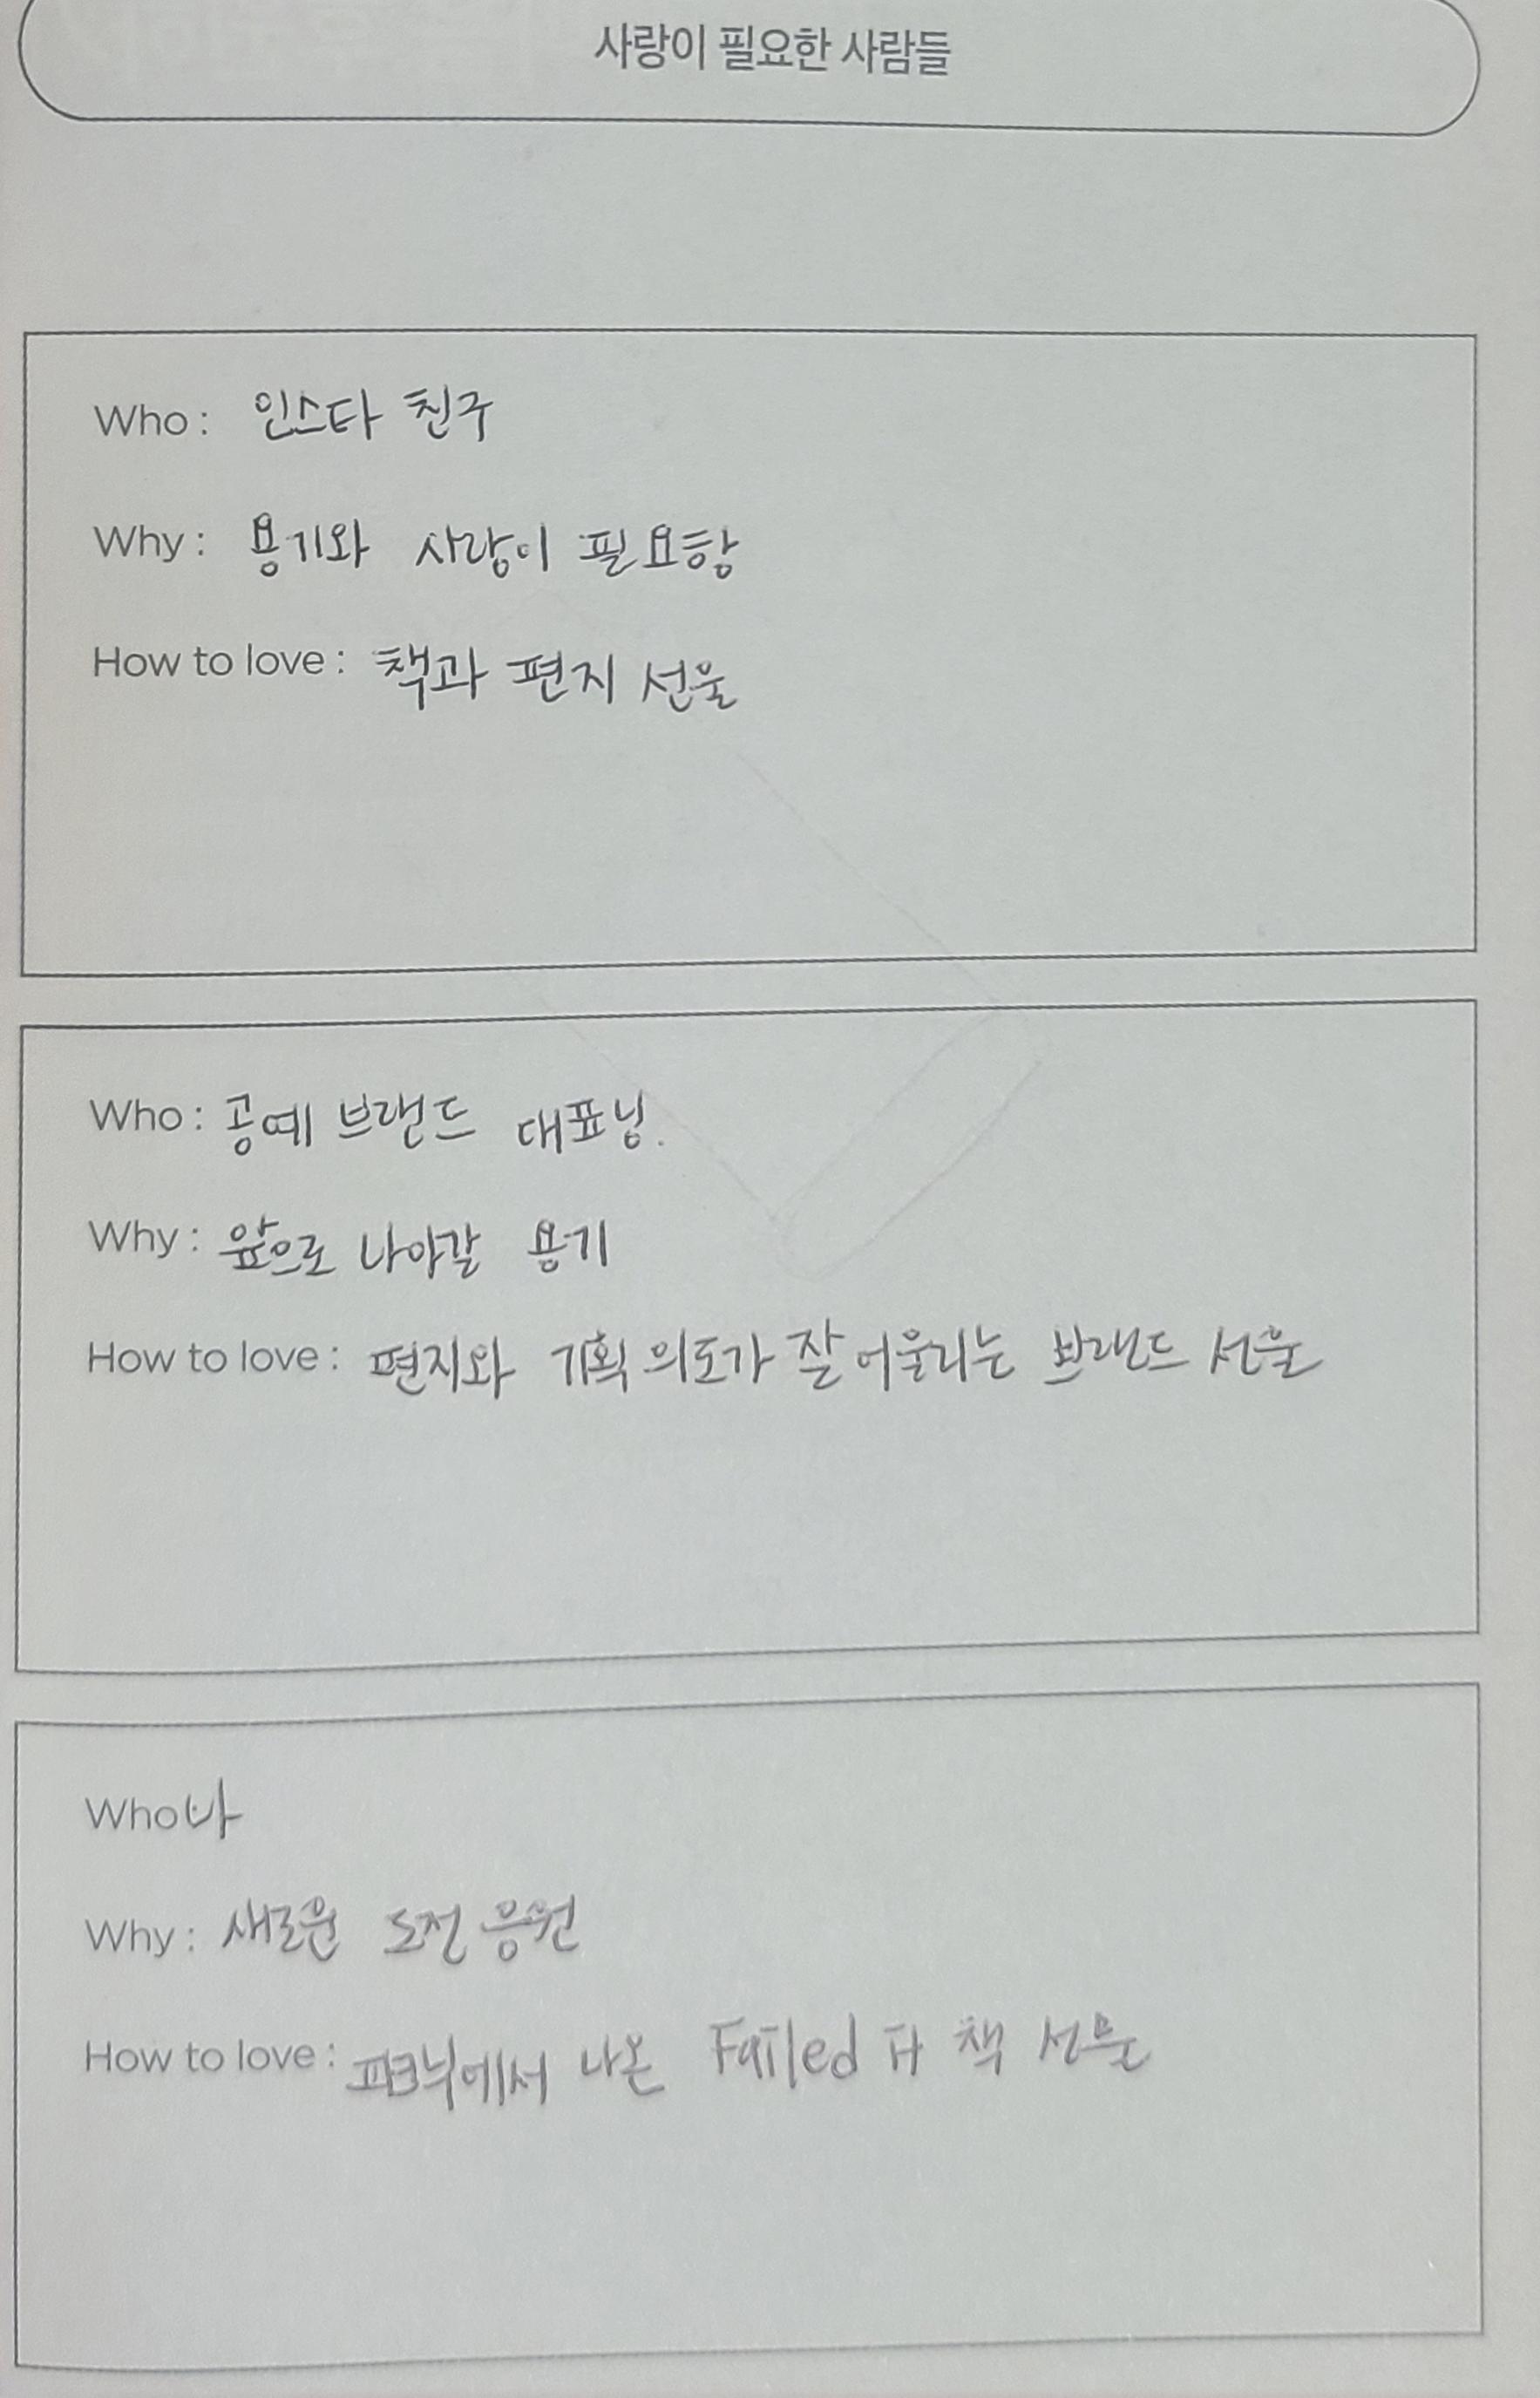 사랑이 필요한 사람들
Who : 인스타 친구
Why : 용기와 사랑이 필요함
How to love : 책과 편지 선물
Who : 공예 브랜드 대표님.
Why : 앞으로 나아갈 용기
How to love : 편지와 기획 의도가 잘 어울리는 브랜드 선물
Who 나
Why : 새로운 도전 응원
How to love : 피크닉에서 나온 Failed it 책 선물